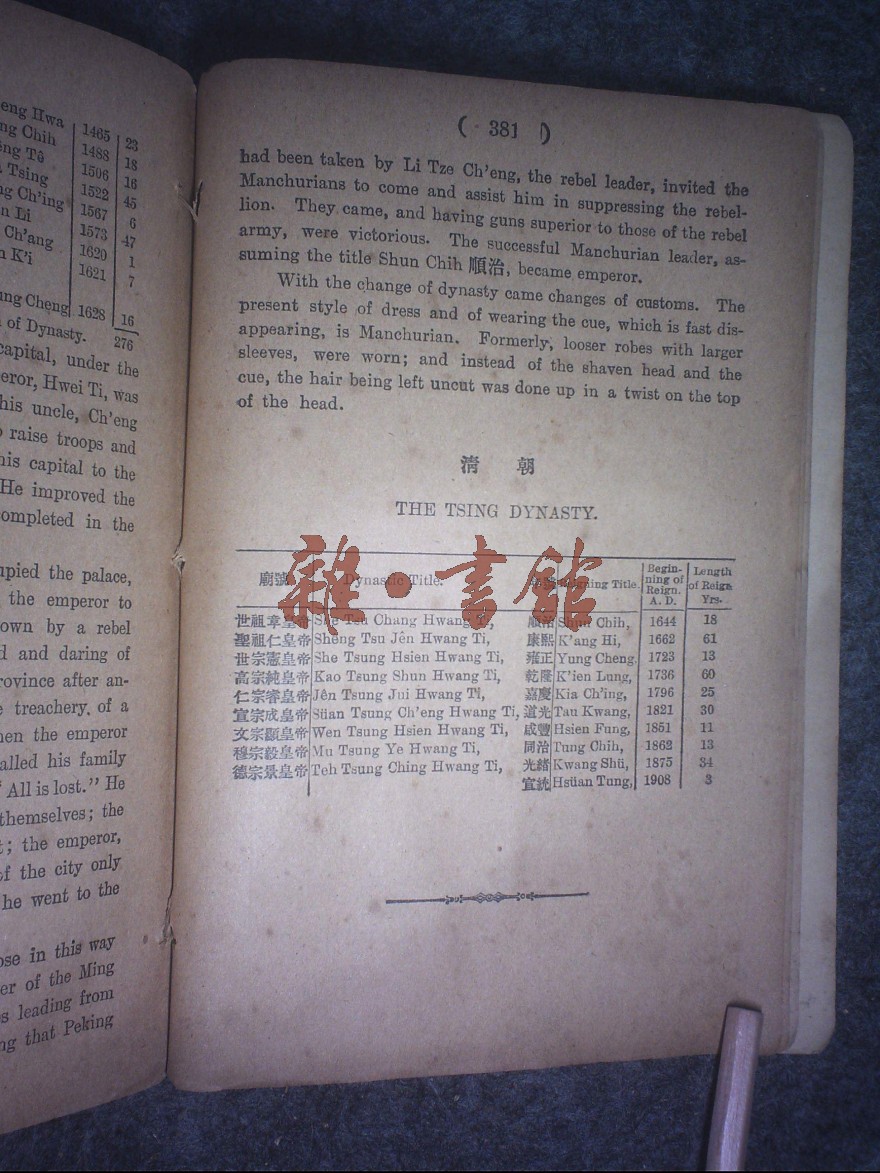 eng Hwa 1465 23
ng Chih 1488 18
ng Tê 1506 16
Tsing 1522 45
ng Ch'ing 1567 6
n Li 1573 47
Ch'ang 1620 1
K'i 1621 7
ung Cheng 1628 16
of Dynasty. 276
capital, under the
eror, Hwei Ti, was
his uncle, Ch'eng
raise troops and
his capital to the
He improved the
ompleted in the
upied the palace,
the emperor to
own by a rebel
d and daring of
rovince after an-
treachery of a
hen the emperor
alled his family
All is lost." He
themselves; the
t; the emperor,
of the city only
he went to the
ose in this way
er of the Ming
s leading from
ng that Peking
( 381 )
had been taken by Li Tze Ch'eng, the rebel leader, invited the
Manchurians to come and assist him in suppressing the rebel-
lion. They came, and having guns superior to those of the rebel
army, were victorious. The successful Manchurian leader, as-
suming the title Shun Chih 順治, became emperor.
With the change of dynasty came changes of customs. The
present style of dress and of wearing the cue, which is fast dis-
appearing, is Manchurian. Formerly, looser robes with larger
sleeves, were worn; and instead of the shaven head and the
cue, the hair being left uncut was done up in a twist on the top
of the head.
清 朝
THE TSING DYNASTY.
雜·書館
廟號 Dynastic Title. Reigning Title. Begin-ning of Reign. A. D. Length of Reign Yrs.
世祖章皇帝 She Tsu Chang Hwang Ti, 順治 Shun Chih, 1644 18
聖祖仁皇帝 Sheng Tsu Jên Hwang Ti, 康熙 K'ang Hi, 1662 61
世宗憲皇帝 She Tsung Hsien Hwang Ti, 雍正 Yung Cheng. 1723 13
高宗純皇帝 Kao Tsung Shun Hwang Ti, 乾隆 K'ien Lung, 1736 60
仁宗睿皇帝 Jên Tsung Jui Hwang Ti, 嘉慶 Kia Ch'ing, 1796 25
宣宗成皇帝 Süan Tsung Ch'eng Hwang Ti, 道光 Tau Kwang, 1821 30
文宗顯皇帝 Wen Tsung Hsien Hwang Ti, 咸豐 Hsien Fung, 1851 11
穆宗毅皇帝 Mu Tsung Ye Hwang Ti, 同治 Tung Chih, 1862 13
德宗景皇帝 Teh Tsung Ching Hwang Ti, 光緒 Kwang Shü, 1875 34
宣統 Hsüan Tung, 1908 3